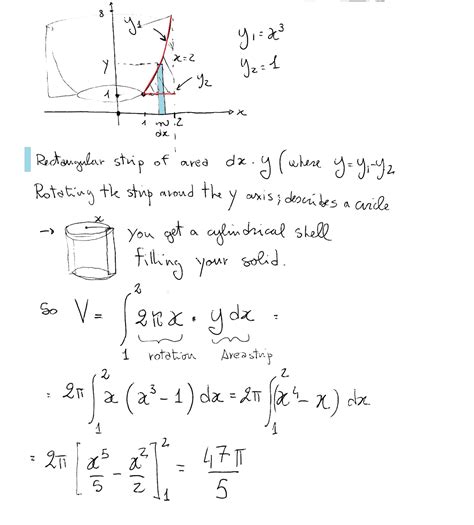 8
y₁
y₁ = x³
x=2
y
y₂ = 1
y₂
1
1 2 x
dx
Rectangular strip of area dx · y (where y = y₁-y₂
Rotating the strip around the y axis; describes a circle
→ x you get a cylindrical shell
filling your solid.
So V = ∫₁² 2πx · y dx =
rotation Area strip
= 2π ∫₁² x (x³ - 1) dx = 2π ∫₁² (x⁴ - x) dx
= 2π [x⁵/5 - x²/2]₁² = 47π/5